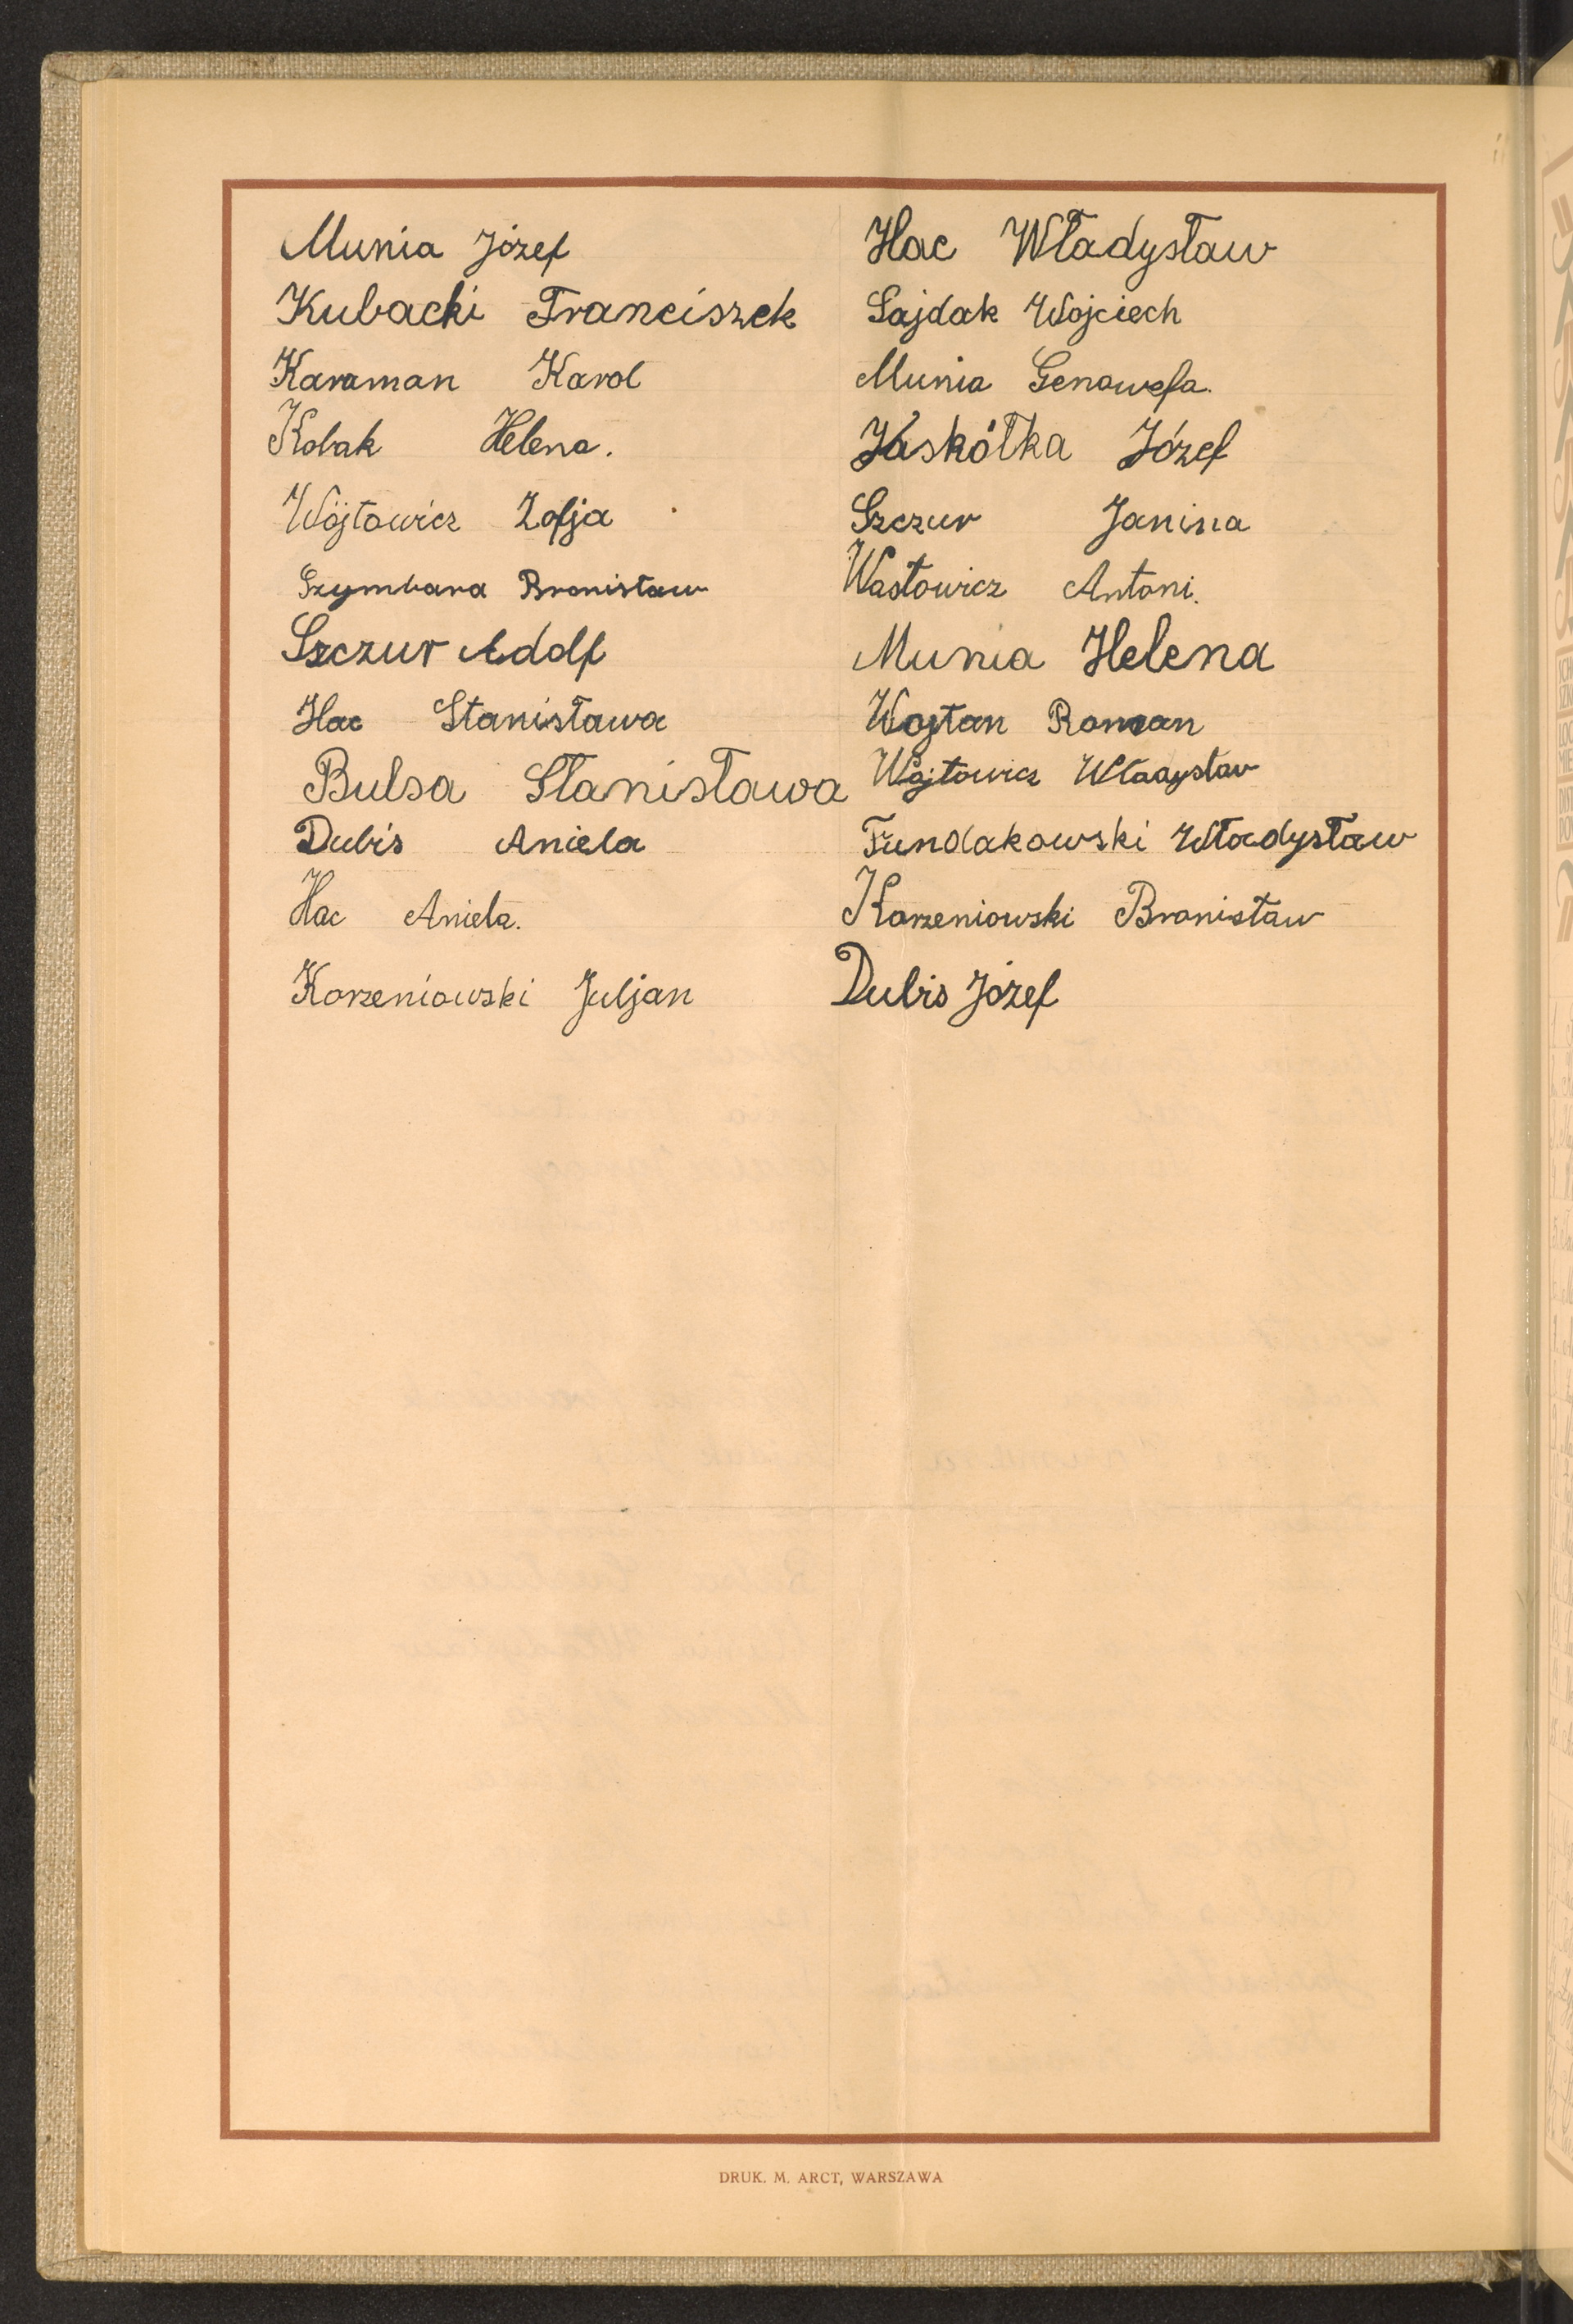 Munia Józef
Kubacki Franciszek
Karaman Karol
Kobak Helena.
Wójtowicz Zofja
Szymbara Bronisław
Szczur Adolf
Hac Stanisława
Bulsa Stanisława
Dubis Aniela
Hac Aniela.
Korzeniowski Juljan
Hac Władysław
Sajdak Wojciech
Munia Genowefa.
Jaskółka Józef
Szczur Janina
Wastowicz Antoni.
Munia Helena
Wojtan Roman
Wójtowicz Władysław
Fundakowski Władysław
Korzeniowski Bronisław
Dubis Józef
DRUK. M. ARCT, WARSZAWA